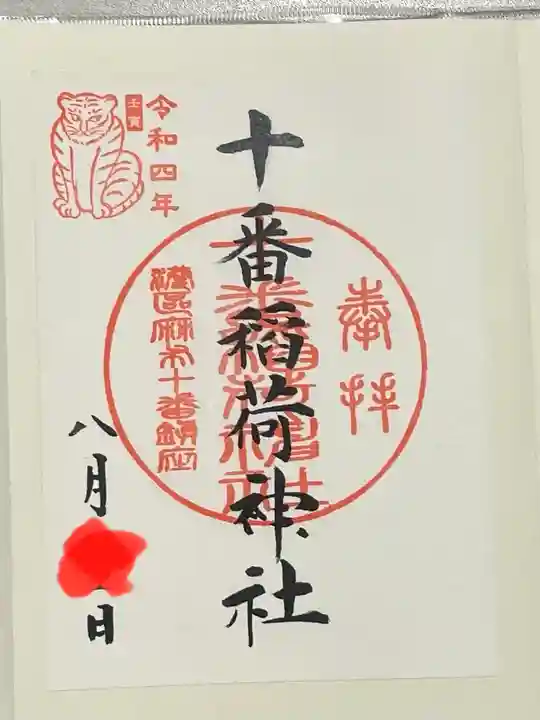 奉拝
十番稲荷神社
港区麻布十番鎮座
令和四年
壬寅
八月
日